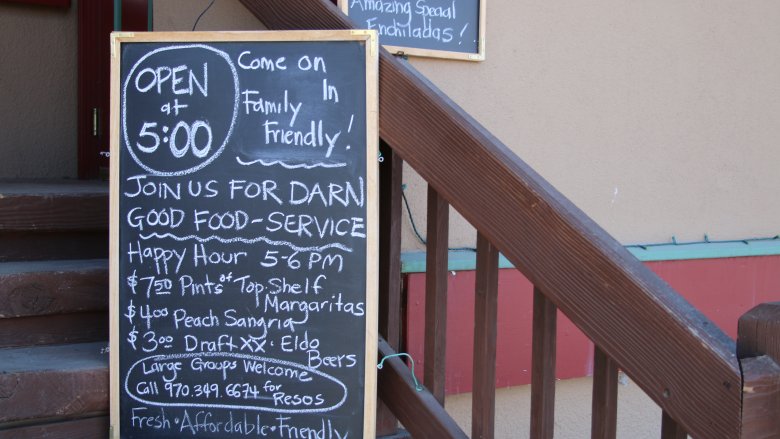 Amazing Special
Enchiladas!
OPEN
at
5:00
Come on
In
Family
Friendly!
JOIN US FOR DARN
GOOD FOOD-SERVICE
Happy Hour 5-6 PM
$7.50 Pints of Top Shelf
Margaritas
$4.00 Peach Sangria
$3.00 Draft XX • Eldo
Beers
Large Groups Welcome
Call 970.349.6674 for
Resos
Fresh • Affordable • Friendly